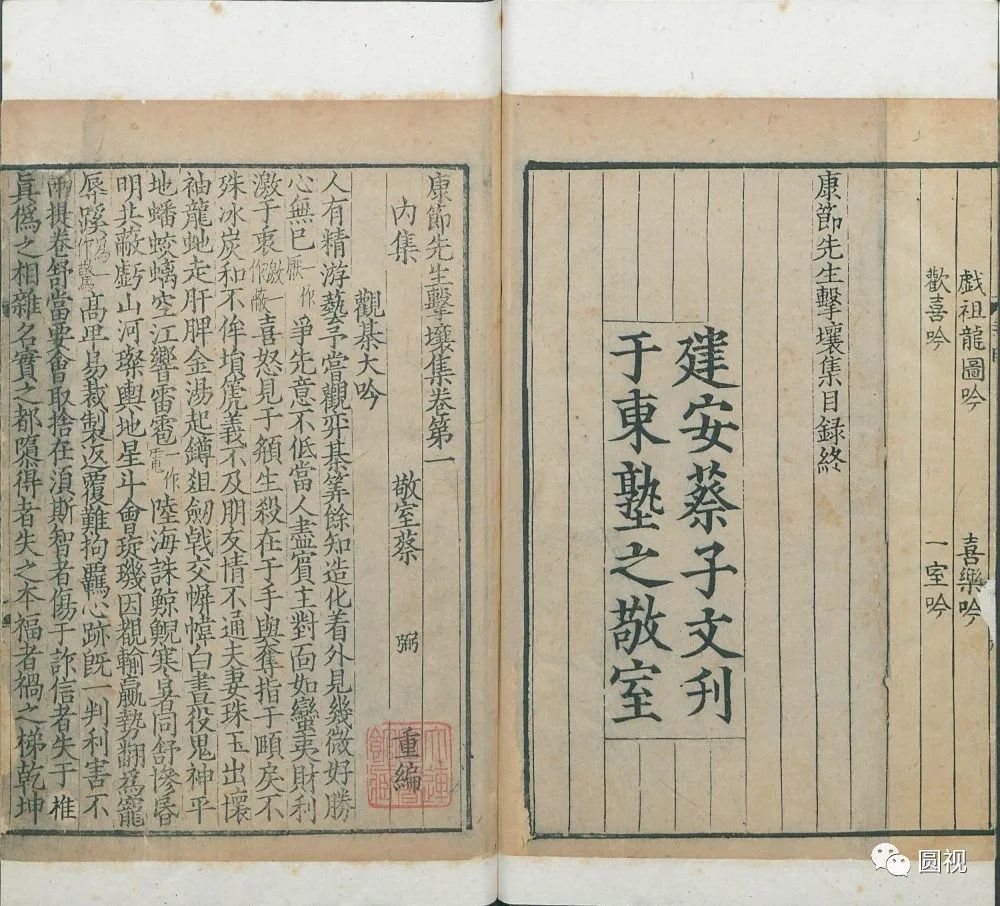 戯祖龍圖吟 喜樂吟
歡喜吟 一室吟
康節先生擊壤集目録終
建安蔡子文刊
于東塾之敬室
康節先生擊壤集卷第一
内集 敬室蔡 弼 重編
觀棊大吟
人有精游藝予嘗觀弈棊筭餘知造化着外見幾微好勝
心無已一作厭爭先意不低當人盡賓主對面如蠻夷財利
激于衷激一作蔽喜怒見于頯生殺在于手與奪指于頤戾不
殊冰炭和不侔塤箎義不及朋友情不通夫妻珠玉出懷
袖龍虵走肝脾金湯起罇俎劒戟交幈幃白晝役鬼神平
地蟠蛟螭空江響雷雹一作電陸海誅鯨鯢寒暑同舒慘昬
明共蔽虧山河璨輿地星斗會璇璣因觀輸贏勢翻爲寵
辱蹊高卑易裁製返覆難拘羈心跡旣一判利害不
兩提卷舒當要會取捨在湏斯智者傷于詐信者失于椎
眞僞之相雜名實之都隳得者失之本福者禍之梯乾坤
圆视